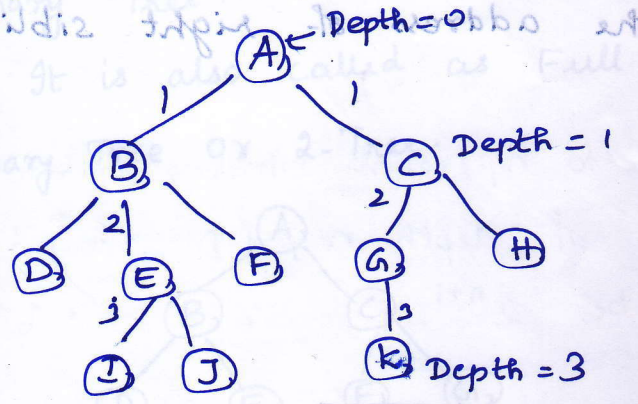 A Depth = 0
1 1
B C Depth = 1
2 2
D E F G H
3 3
I J K Depth = 3